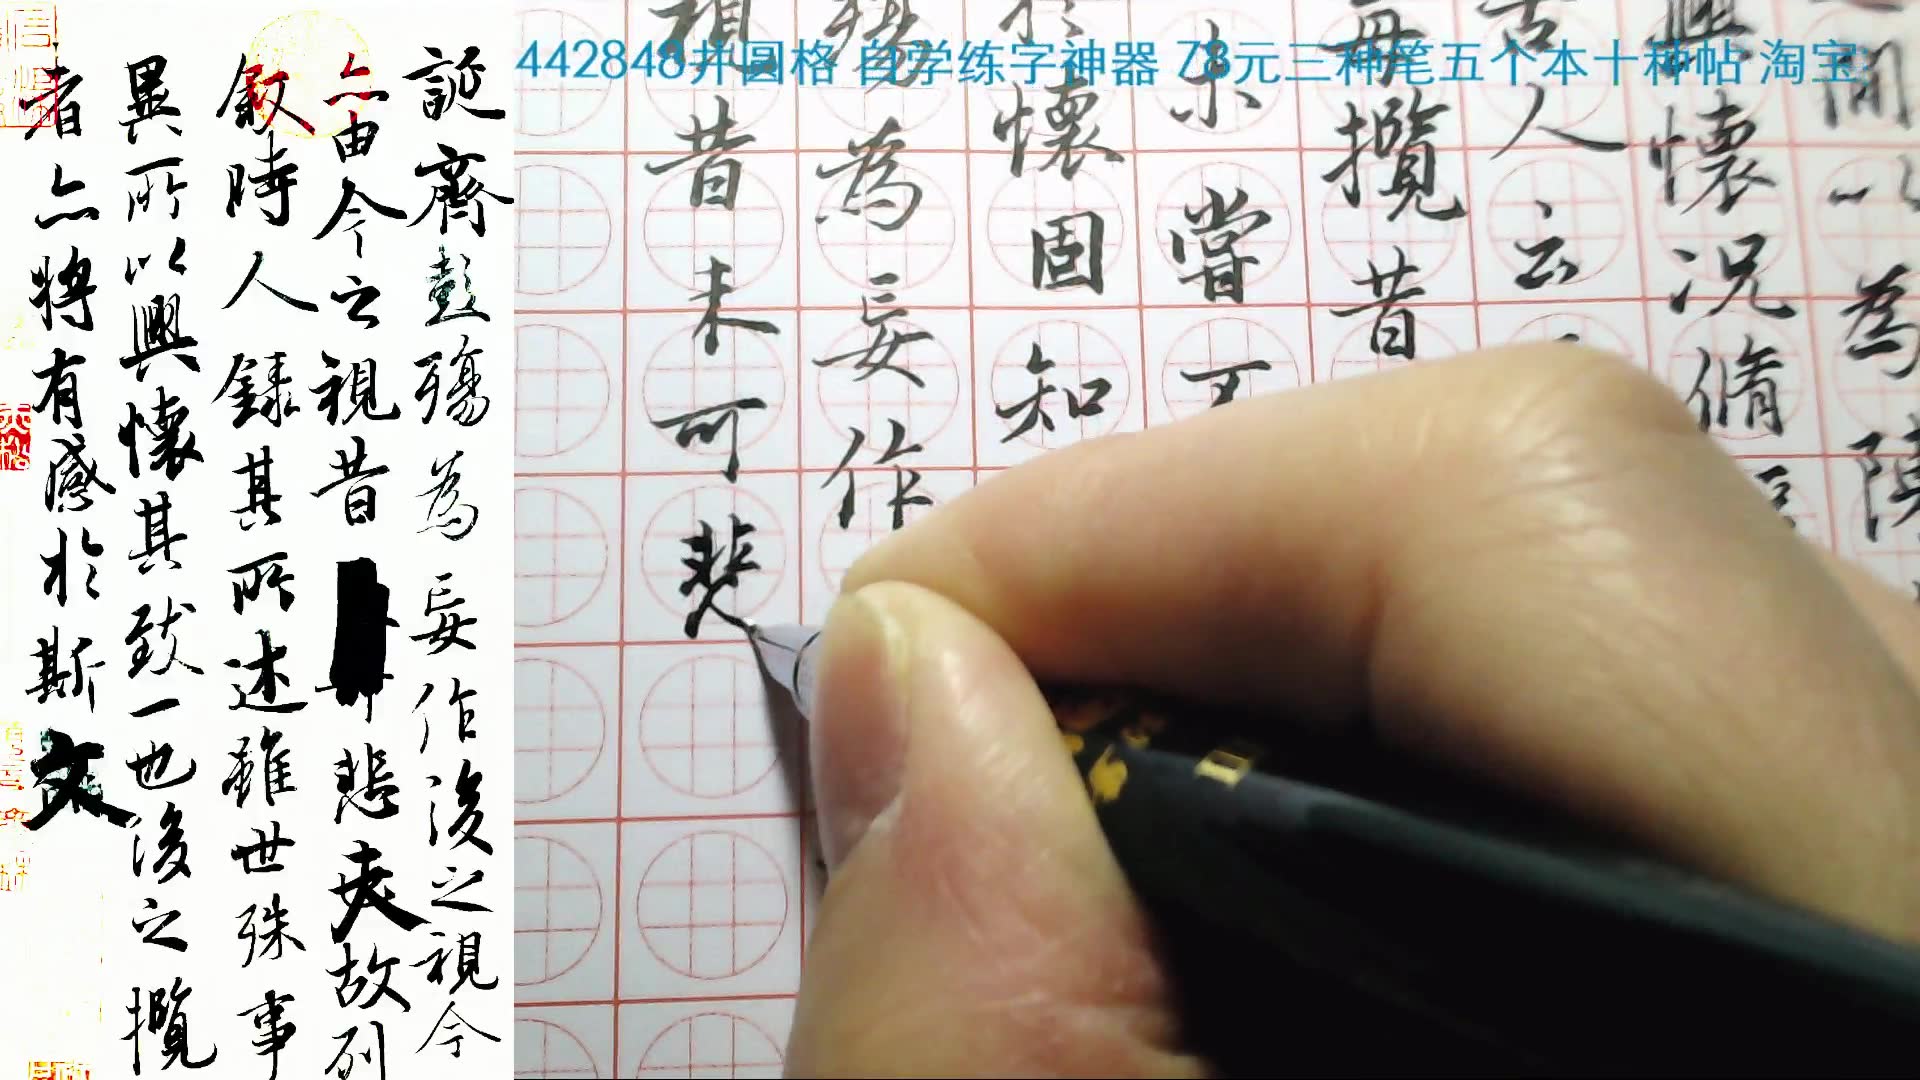 442848井圆格 自学练字神器 78元三种笔五个本十种帖 淘宝:
誕齊彭殤為妄作後之視今
亦由今之視昔悲夫故列
叙時人録其所述雖世殊事
異所以興懷其致一也後之攬
者亦将有感於斯文
間以為陳
興懷况脩
古人云
每攬昔
未嘗不
於懷固知
殤為妄作
視昔未可悲